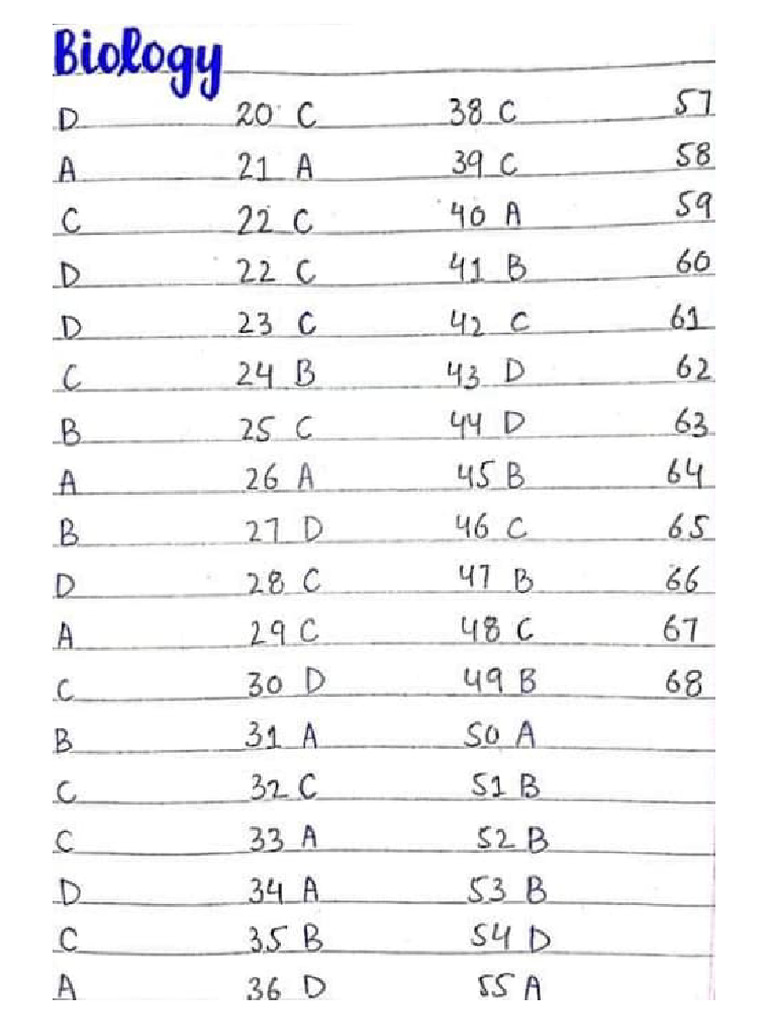 Biology
D 20 C 38 C 57
A 21 A 39 C 58
C 22 C 40 A 59
D 22 C 41 B 60
D 23 C 42 C 61
C 24 B 43 D 62
B 25 C 44 D 63
A 26 A 45 B 64
B 27 D 46 C 65
D 28 C 47 B 66
A 29 C 48 C 67
C 30 D 49 B 68
B 31 A 50 A
C 32 C 51 B
C 33 A 52 B
D 34 A 53 B
C 35 B 54 D
A 36 D 55 A